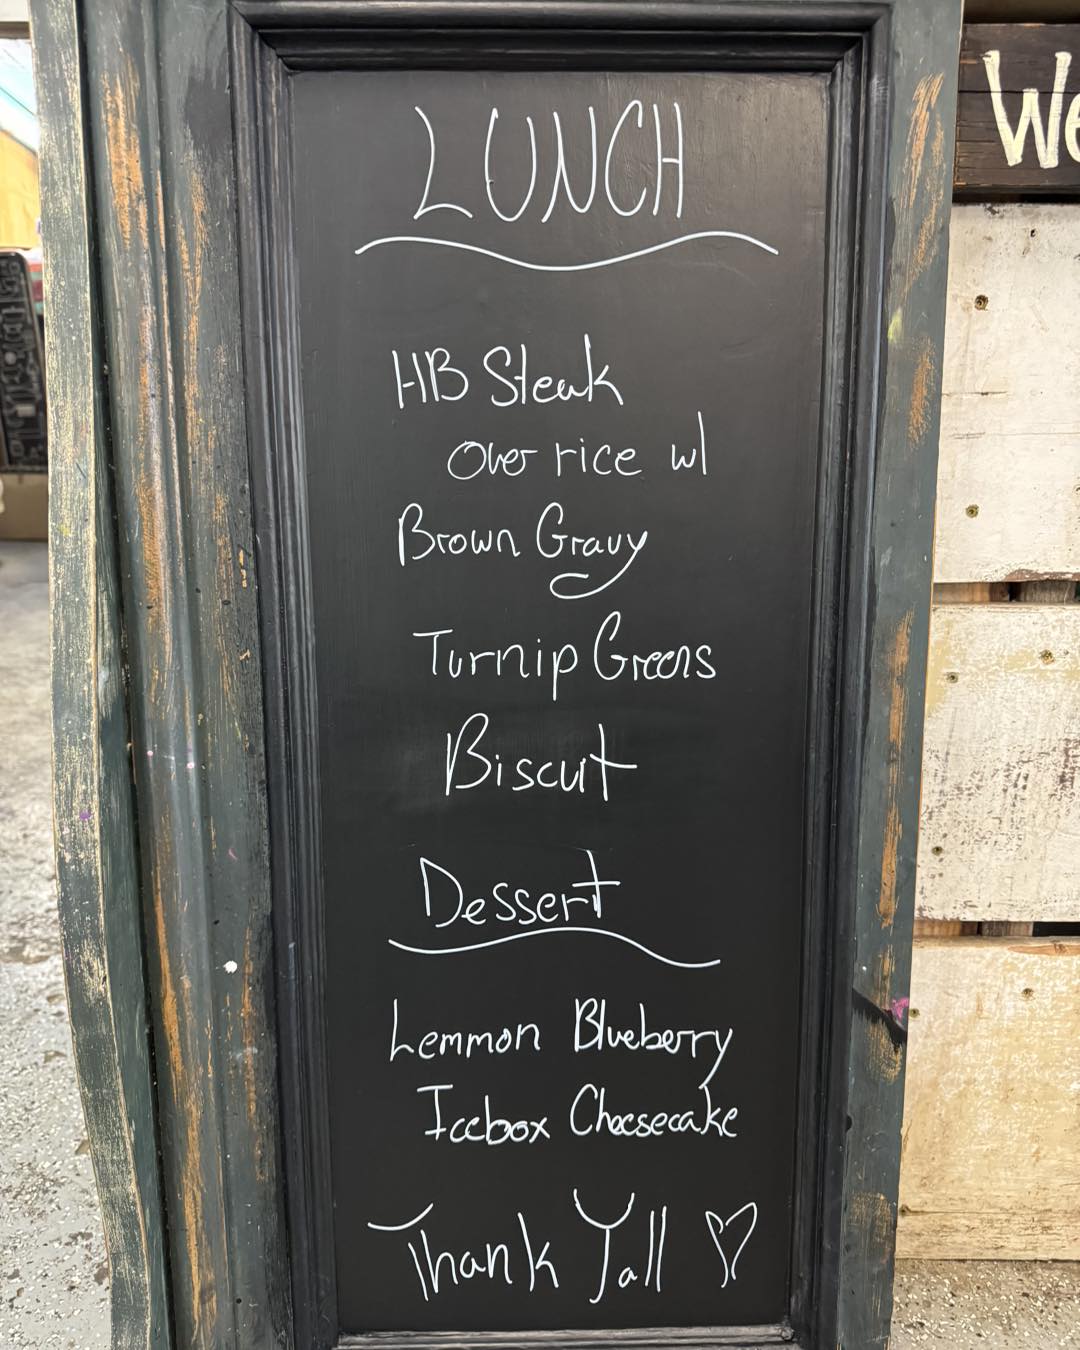 LUNCH
HB Steak
over rice w/
Brown Gravy
Turnip Greens
Biscuit
Dessert
Lemmon Blueberry
Icebox Cheesecake
Thank Yall ♡
We